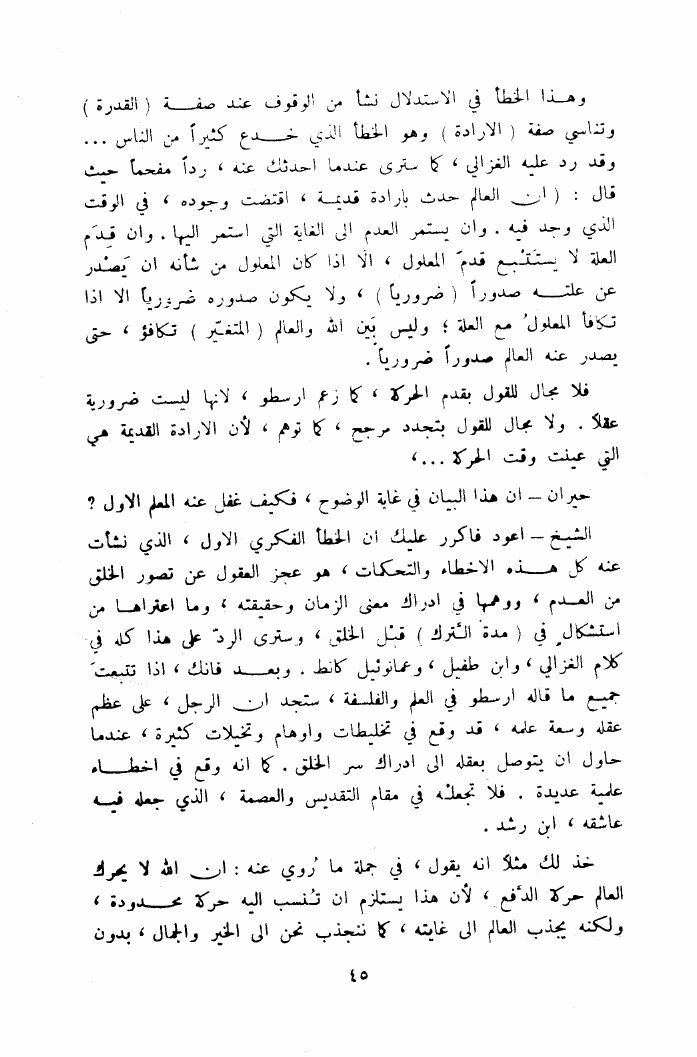 وهـذا الخطأ في الاستدلال نشأ من الوقوف عند صفـة ( القدرة )
وتناسي صفة ( الارادة ) وهو الخطأ الذي خـدع كثيراً من الناس ...
وقد رد عليه الغزالي ، كما سترى عندما احدثك عنه ، رداً مفحماً حيث
قال : ( ان العالم حدث بارادة قديمـة ، اقتضت وجوده ، في الوقت
الذي وجد فيه . وان يستمر العدم الى الغاية التي استمر اليها . وان قِدَم
العلة لا يستَتْبِع قدمَ المعلول ، الا اذا كان المعلول من شأنه ان يَصْدر
عن علتـه صدوراً ( ضرورياً ) ، ولا يكون صدوره ضرورياً الا اذا
تكافأ المعلولُ مع العلة ؛ وليس بَين الله والعالم ( المتغيّر ) تكافؤ ، حتى
يصدر عنه العالم صدوراً ضرورياً .
فلا مجال للقول بقدم الحركة ، كما زعم ارسطو ، لانها ليست ضرورية
عقلاً . ولا مجال للقول بتجدد مرجح ، كما توهم ، لأن الارادة القديمة هي
التي عينت وقت الحركة ...،
حيران – ان هذا البيان في غاية الوضوح ، فكيف غفل عنه المعلم الاول ؟
الشيخ – اعود فاكرر عليك ان الخطأ الفكري الاول ، الذي نشأت
عنه كل هـذه الاخطاء والتحكمات ، هو عجز العقول عن تصور الخلق
من العـدم ، ووهمها في ادراك معنى الزمان وحقيقته ، وما اعتراهـا من
استشكال في ( مدة التَّرك ) قبْل الخلق ، وسترى الردّ على هذا كله في
كلام الغزالي ، وابن طفيل ، وعمانوئيل كانط . وبعـد فانك ، اذا تتبعتَ
جميع ما قاله ارسطو في العلم والفلسفة ، ستجد ان الرجل ، على عظم
عقله وسعة علمه ، قد وقع في تخليطات واوهام وتخيلات كثيرة ، عندما
حاول ان يتوصل بعقله الى ادراك سر الخلق . كما انه وقع في اخطـاء
علمية عديدة . فلا تجعلنْه في مقام التقديس والعصمة ، الذي جعله فيـه
عاشقه ، ابن رشد .
خذ لك مثلاً انه يقول ، في جملة ما رُوي عنه : ان الله لا يحرك
العالم حركة الدَّفع ، لأن هذا يستلزم ان تُنسب اليه حركة محـدودة ،
ولكنه يجذب العالم الى غايته ، كما ننجذب نحن الى الخير والجمال ، بدون
٤٥